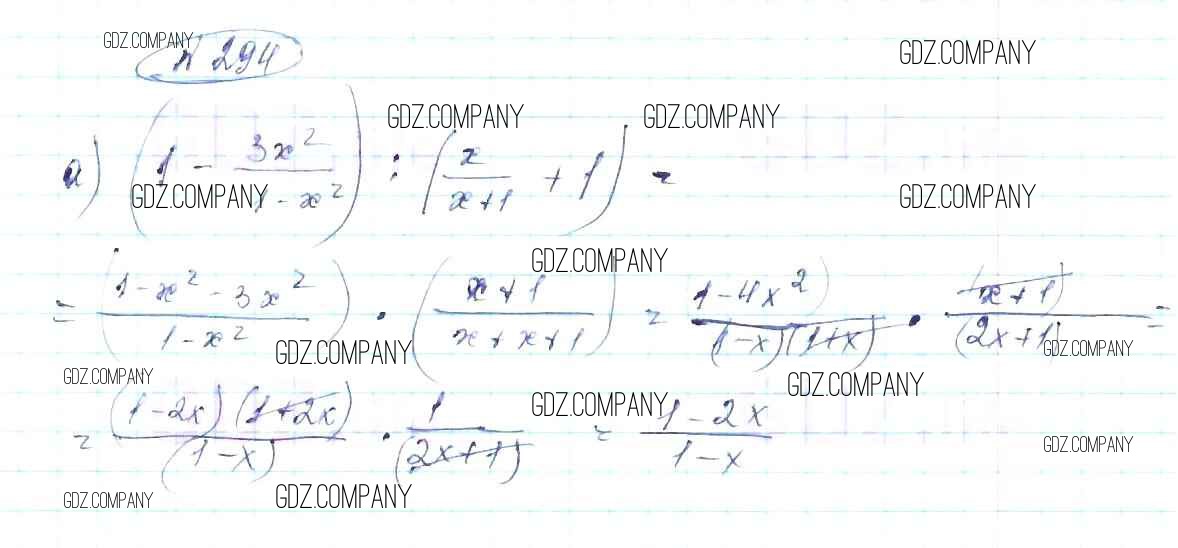 GDZ.COMPANY
N 294
GDZ.COMPANY
GDZ.COMPANY GDZ.COMPANY
а) (1 - 3x²/(1 - x²)) : (x/(x+1) + 1) =
GDZ.COMPANY GDZ.COMPANY
GDZ.COMPANY
= ((1 - x² - 3x²)/(1 - x²)) · ((x+1)/(x+x+1)) = (1-4x²)/((1-x)(1+x)) · (x+1)/(2x+1) =
GDZ.COMPANY GDZ.COMPANY
GDZ.COMPANY GDZ.COMPANY
= (1-2x)(1+2x)/(1-x) · 1/(2x+1) = (1-2x)/(1-x)
GDZ.COMPANY GDZ.COMPANY
GDZ.COMPANY GDZ.COMPANY